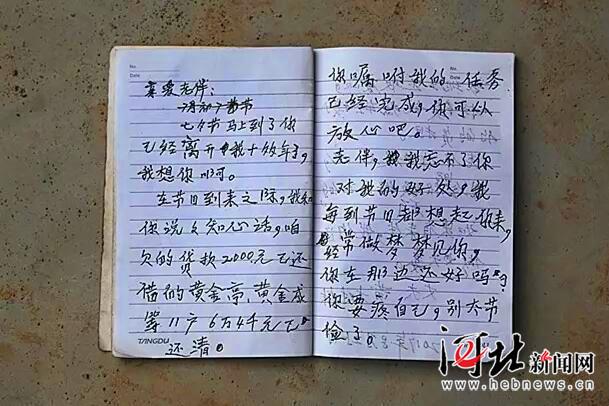 No.
Date
亲爱老伴：
七夕节马上到了你
已经离开我十余年了，
我想你啊。
在节日到来之际，我和
你说么知心话，咱
欠的贷款2000元已还
借的黄金亭、黄金成
等11户6万4千元已
还清。
TANGDU
No.
Date
你嘱咐我的任务
已经完成，你可以
放心吧。
老伴，我忘不了你
对我的好处，我
每到节日都想起你来，
经常做梦梦见你，
你在那边还好吗？
你要疼自己，别太节
俭了。
河北新闻网
www.hebnews.cn